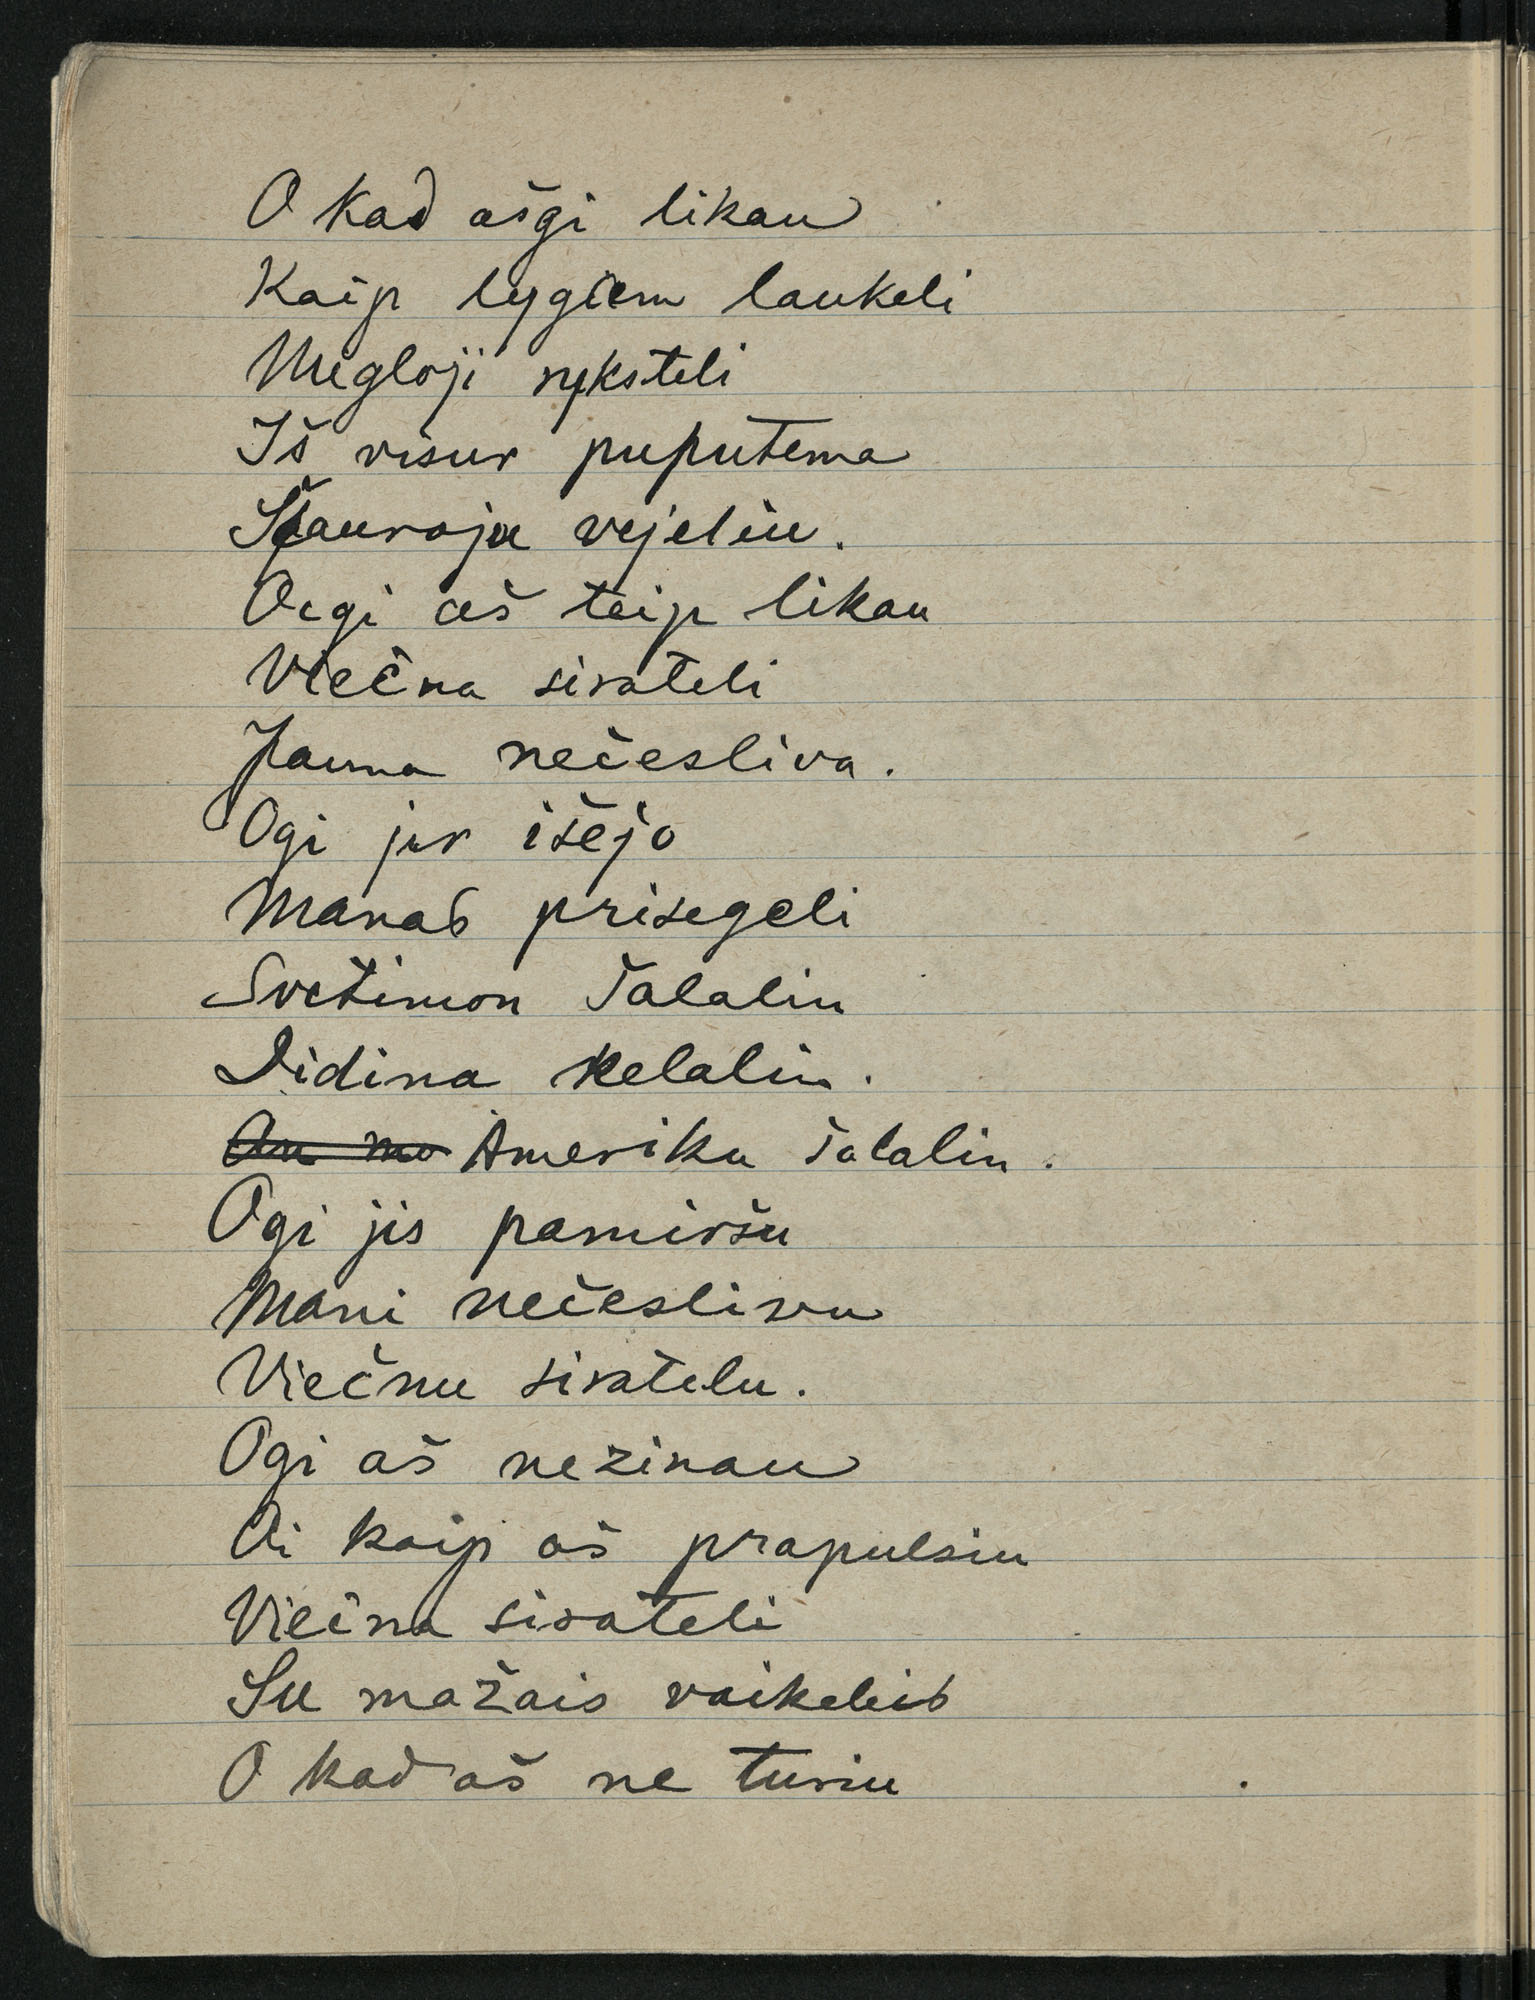 O kad ašgi likau
Kaip lygiem laukeli
Megloji nyksteli
Iš visur puputema
Šiauroju vejeliu.
O kaipgi aš teip likau
Viečna sirateli
Jauna nečesliva.
Ogi jur išėjo
Manas prisegeli
Svetimon šalalin
Didina kelalin.
Ameriku šalalin.
Ogi jis pamiršu
Mani nečeslivu
Viečnu siratelu.
Ogi aš nezinau
Ai kaip aš prapulsiu
Viečna sirateli
Su mažais vaikeleis
O kad aš ne turiu